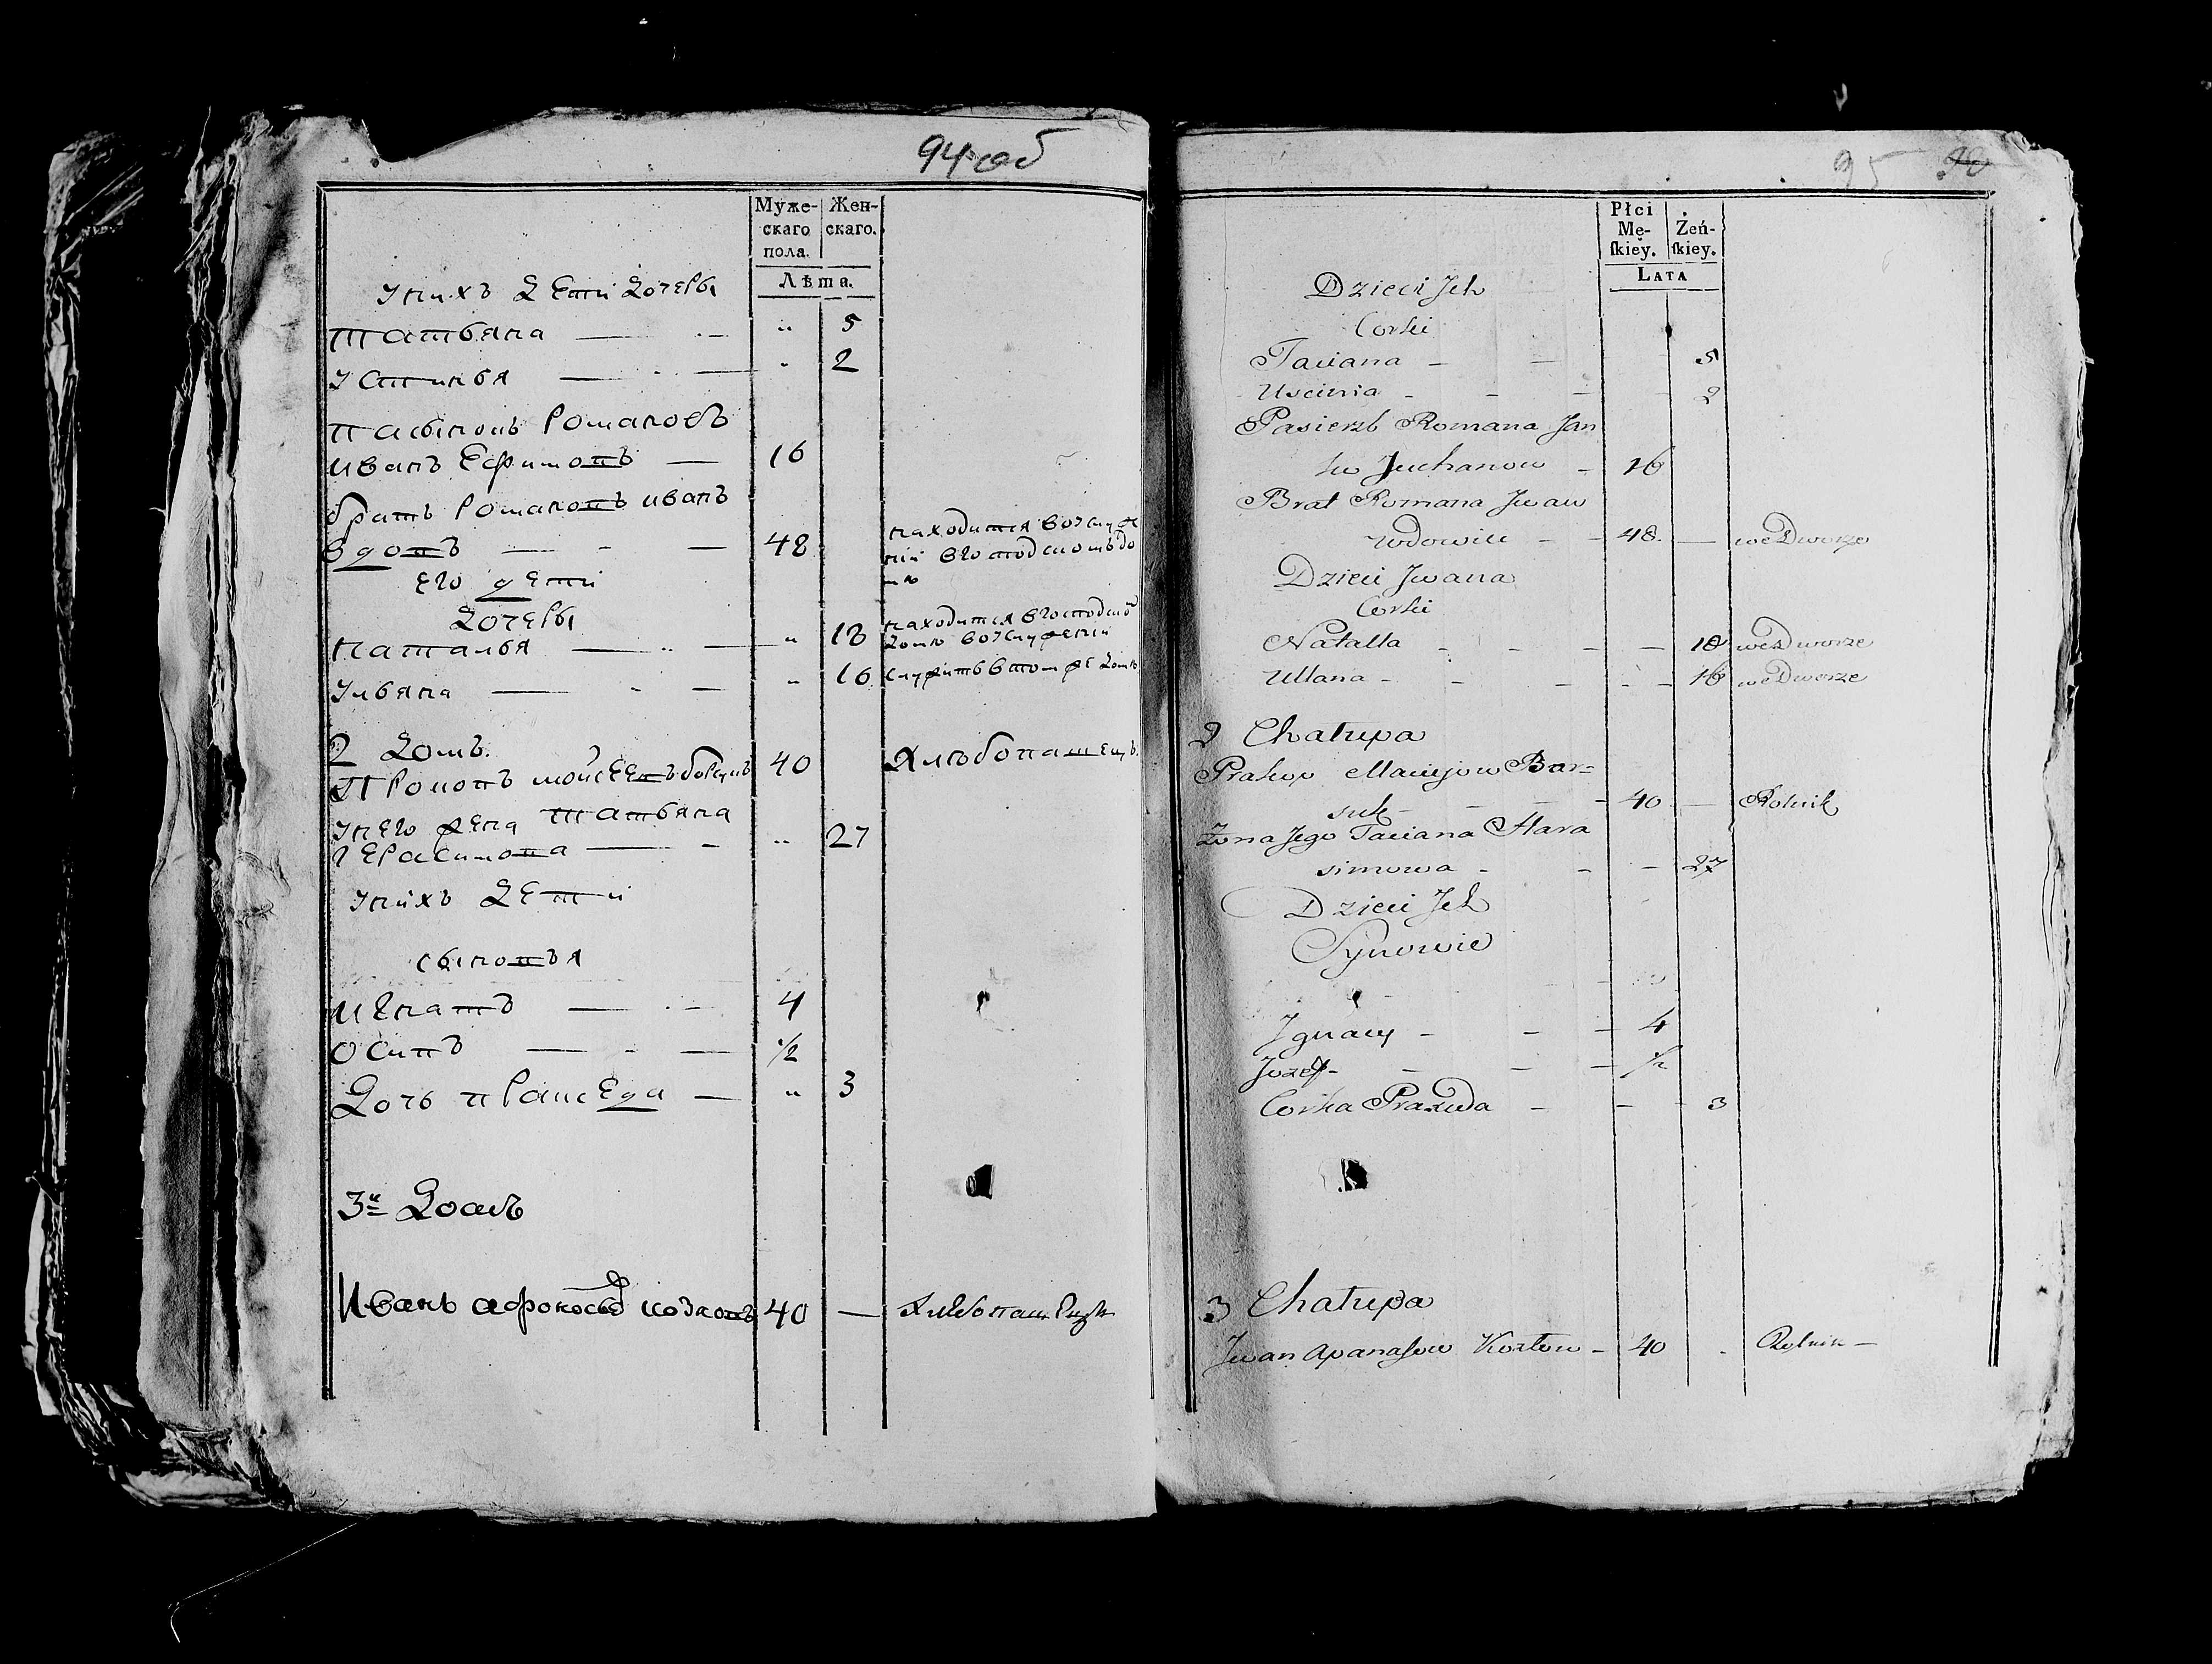 94 об
Муже-
скаго
пола.
Жен-
скаго.
Лѣта.
У нихъ Дети Дочеры
Татьяна — „ 5
Устинья — „ 2
Пасынокъ Романовъ
Иванъ Ефимовъ — 16
братъ Романовъ иванъ
вдовъ — 48
находится во услуже
нiи в господскомъ до
мѣ
его дети
Дочеры
Наталья — „ 18
находится в господско
доме во услуженiи
Ульяна — „ 16
служитъ в том же доме
2 Домъ.
Прокопъ мойсеевъ борсукъ 40 Хлѣбопашецъ.
У него жена Татьяна
герасимова — „ 27
У нихъ Дети
сыновья
Игнатъ — 4
Осипъ — 1/2
Дочь пракседа — „ 3
3й Домъ
Иванъ афоносовъ козловъ 40 — Хлебопашецъ
95 90
Płci
Mę-
ſkiey.
Żeń-
ſkiey.
LATA
Dzieci Jch
Corki
Taciana - - 5
Uscinia - - - 2
Pasierzb Romana Jan
Juchanow - 16
Brat Romana Jwan
wdowiec - - 48. — we Dworze
Dzieci Jwana
Corki
Natalla - - - — 18 we Dworze
Ullana - - - - 16 we Dworze
2 Chałupa
Prakop Maciejow Bar=
suk - - - 40 — Rolnik
Żona Jego Taciana Hara
simowa - - - 27
Dzieci Jch
Synowie
Jgnacy - - - 4
Jozef - - - - 1/2
Corka Praxeda - - - 3
3 Chałupa
Jwan Apanasow Kozłow - 40 - Rolnik —